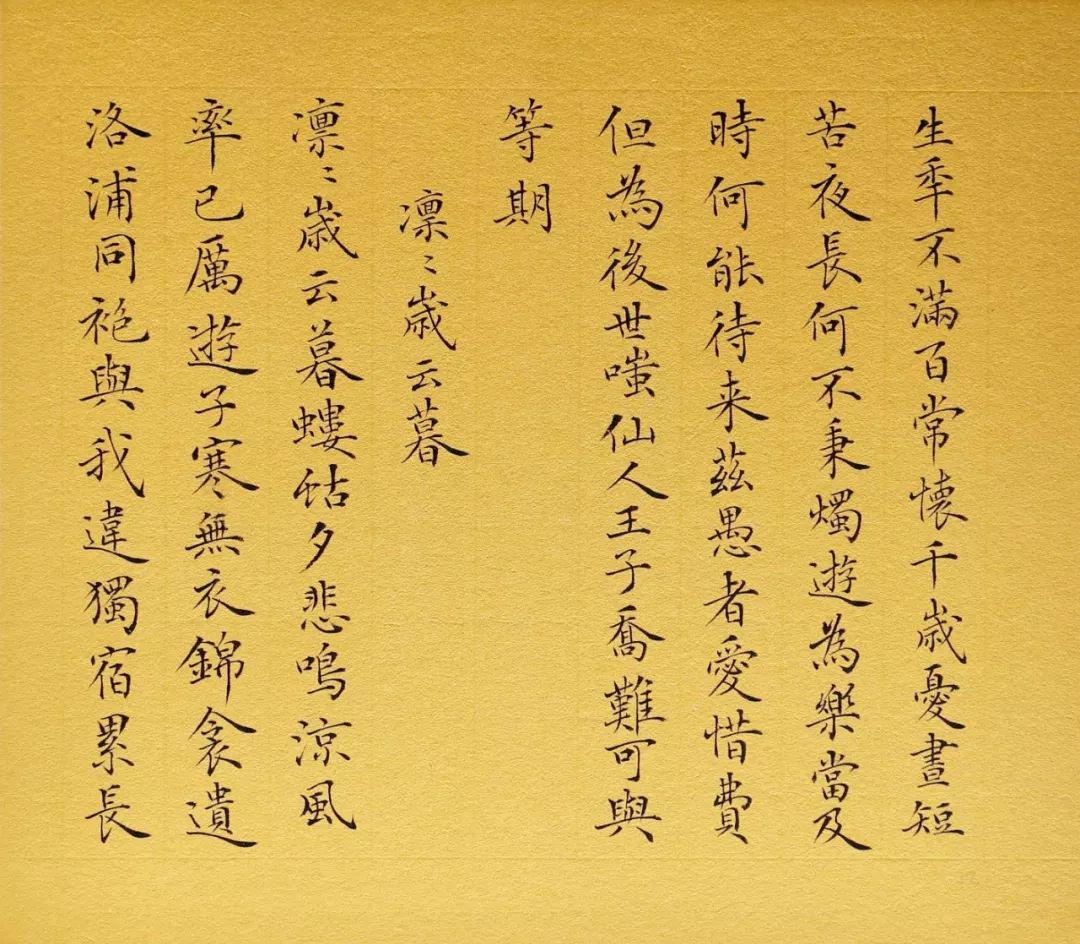 生年不滿百常懷千歲憂晝短
苦夜長何不秉燭遊為樂當及
時何能待来茲愚者愛惜費
但為後世嗤仙人王子喬難可與
等期
凛〻歲云暮
凛〻歲云暮螻蛄夕悲鳴涼風
率已厲遊子寒無衣錦衾遺
洛浦同袍與我違獨宿累長